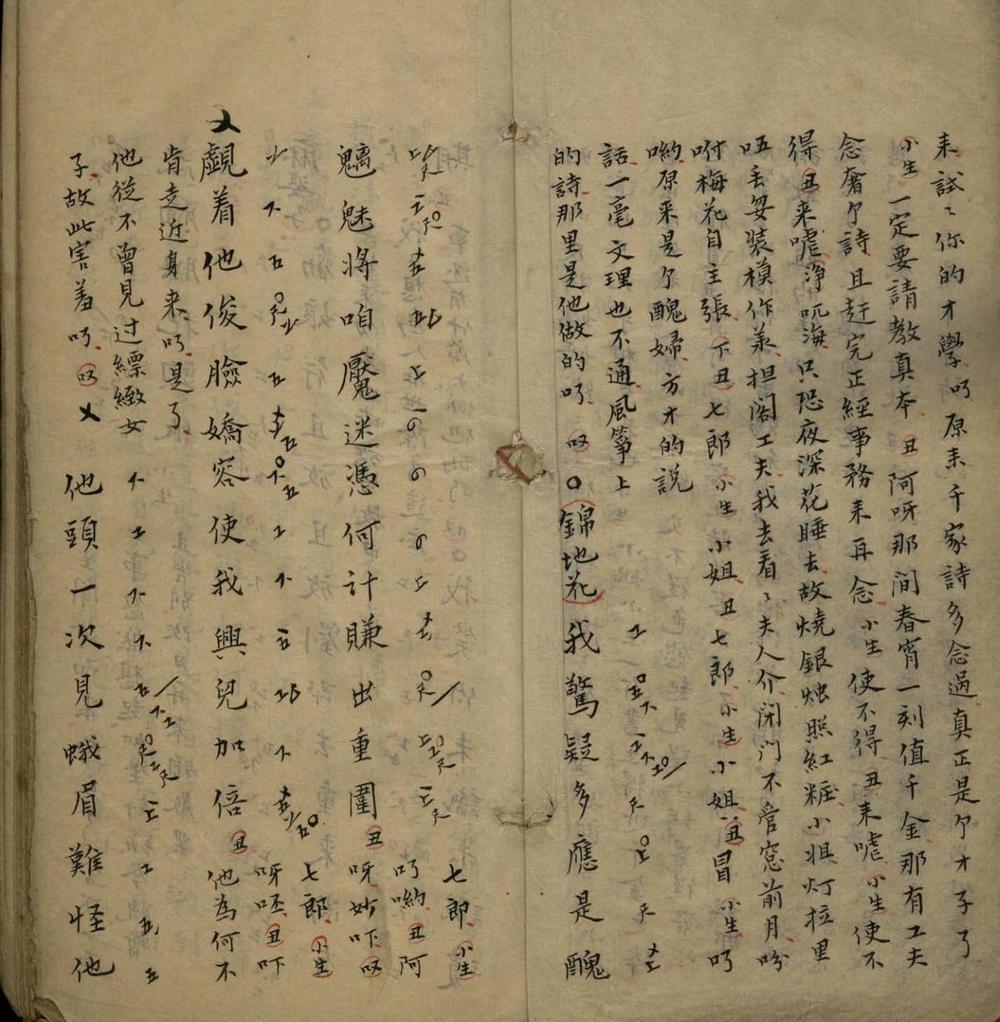 来試〻你的才學吖原来千家詩多念過真正是个才子了
小生一定要請教真本丑阿呀那间春宵一刻值千金那有工夫
念奢个詩且赶完正經事務来再念小生使不得丑来嘘小生使不
得丑来嘘淨吪海只恐夜深花睡去故燒銀烛照紅粧小姐灯拉里
唔丢妛装模作羕担阁工夫我去看〻夫人介闭门不管窓前月吩
咐梅花自主張下丑七郎小生小姐丑七郎小生小姐丑冒小生吖
喲原来是个醜婦方才的說
話一毫文理也不通風筝上
的詩那里是他做的吖㕛錦地花我驚疑多應是醜
七郎小生
吖喲丑阿
魑魅将咱魘迷憑何計賺出重圍丑呀妙吓㕛
七郎小生
呀呸丑吓
覷着他俊臉嬌容使我興兒加倍丑他為何不
肯走近身来吖是了
他從不曾見过縹緻女
子故此害羞吖㕛他頭一次見蛾眉難怪他